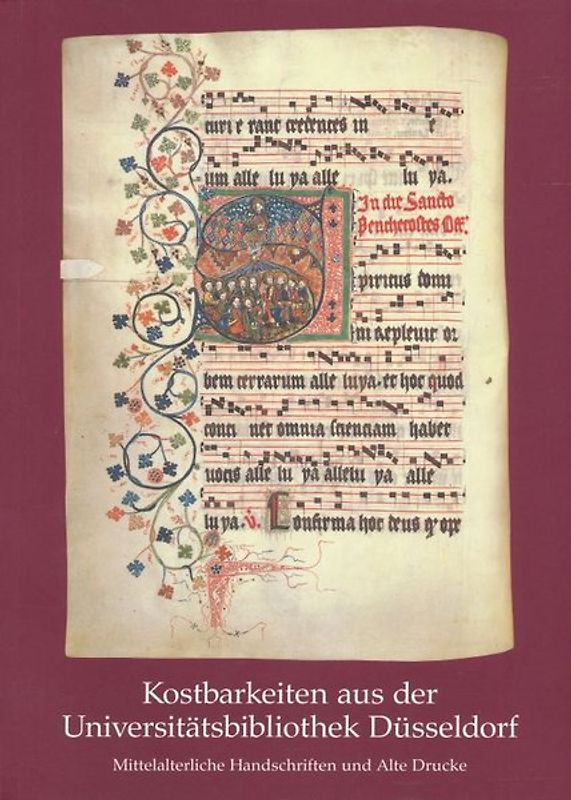 turi e rant credentes in e
um alle lu ya alle lu ya.
In die Sancto
Penthecostes Off'.
Spiritus domi
ni repleuit or
bem terrarum alle luya. et hoc quod
conti net omnia scienciam habet
uocis alle lu ya allelu ya alle
lu ya. V. Confirma hoc deus q ope
Kostbarkeiten aus der
Universitätsbibliothek Düsseldorf
Mittelalterliche Handschriften und Alte Drucke